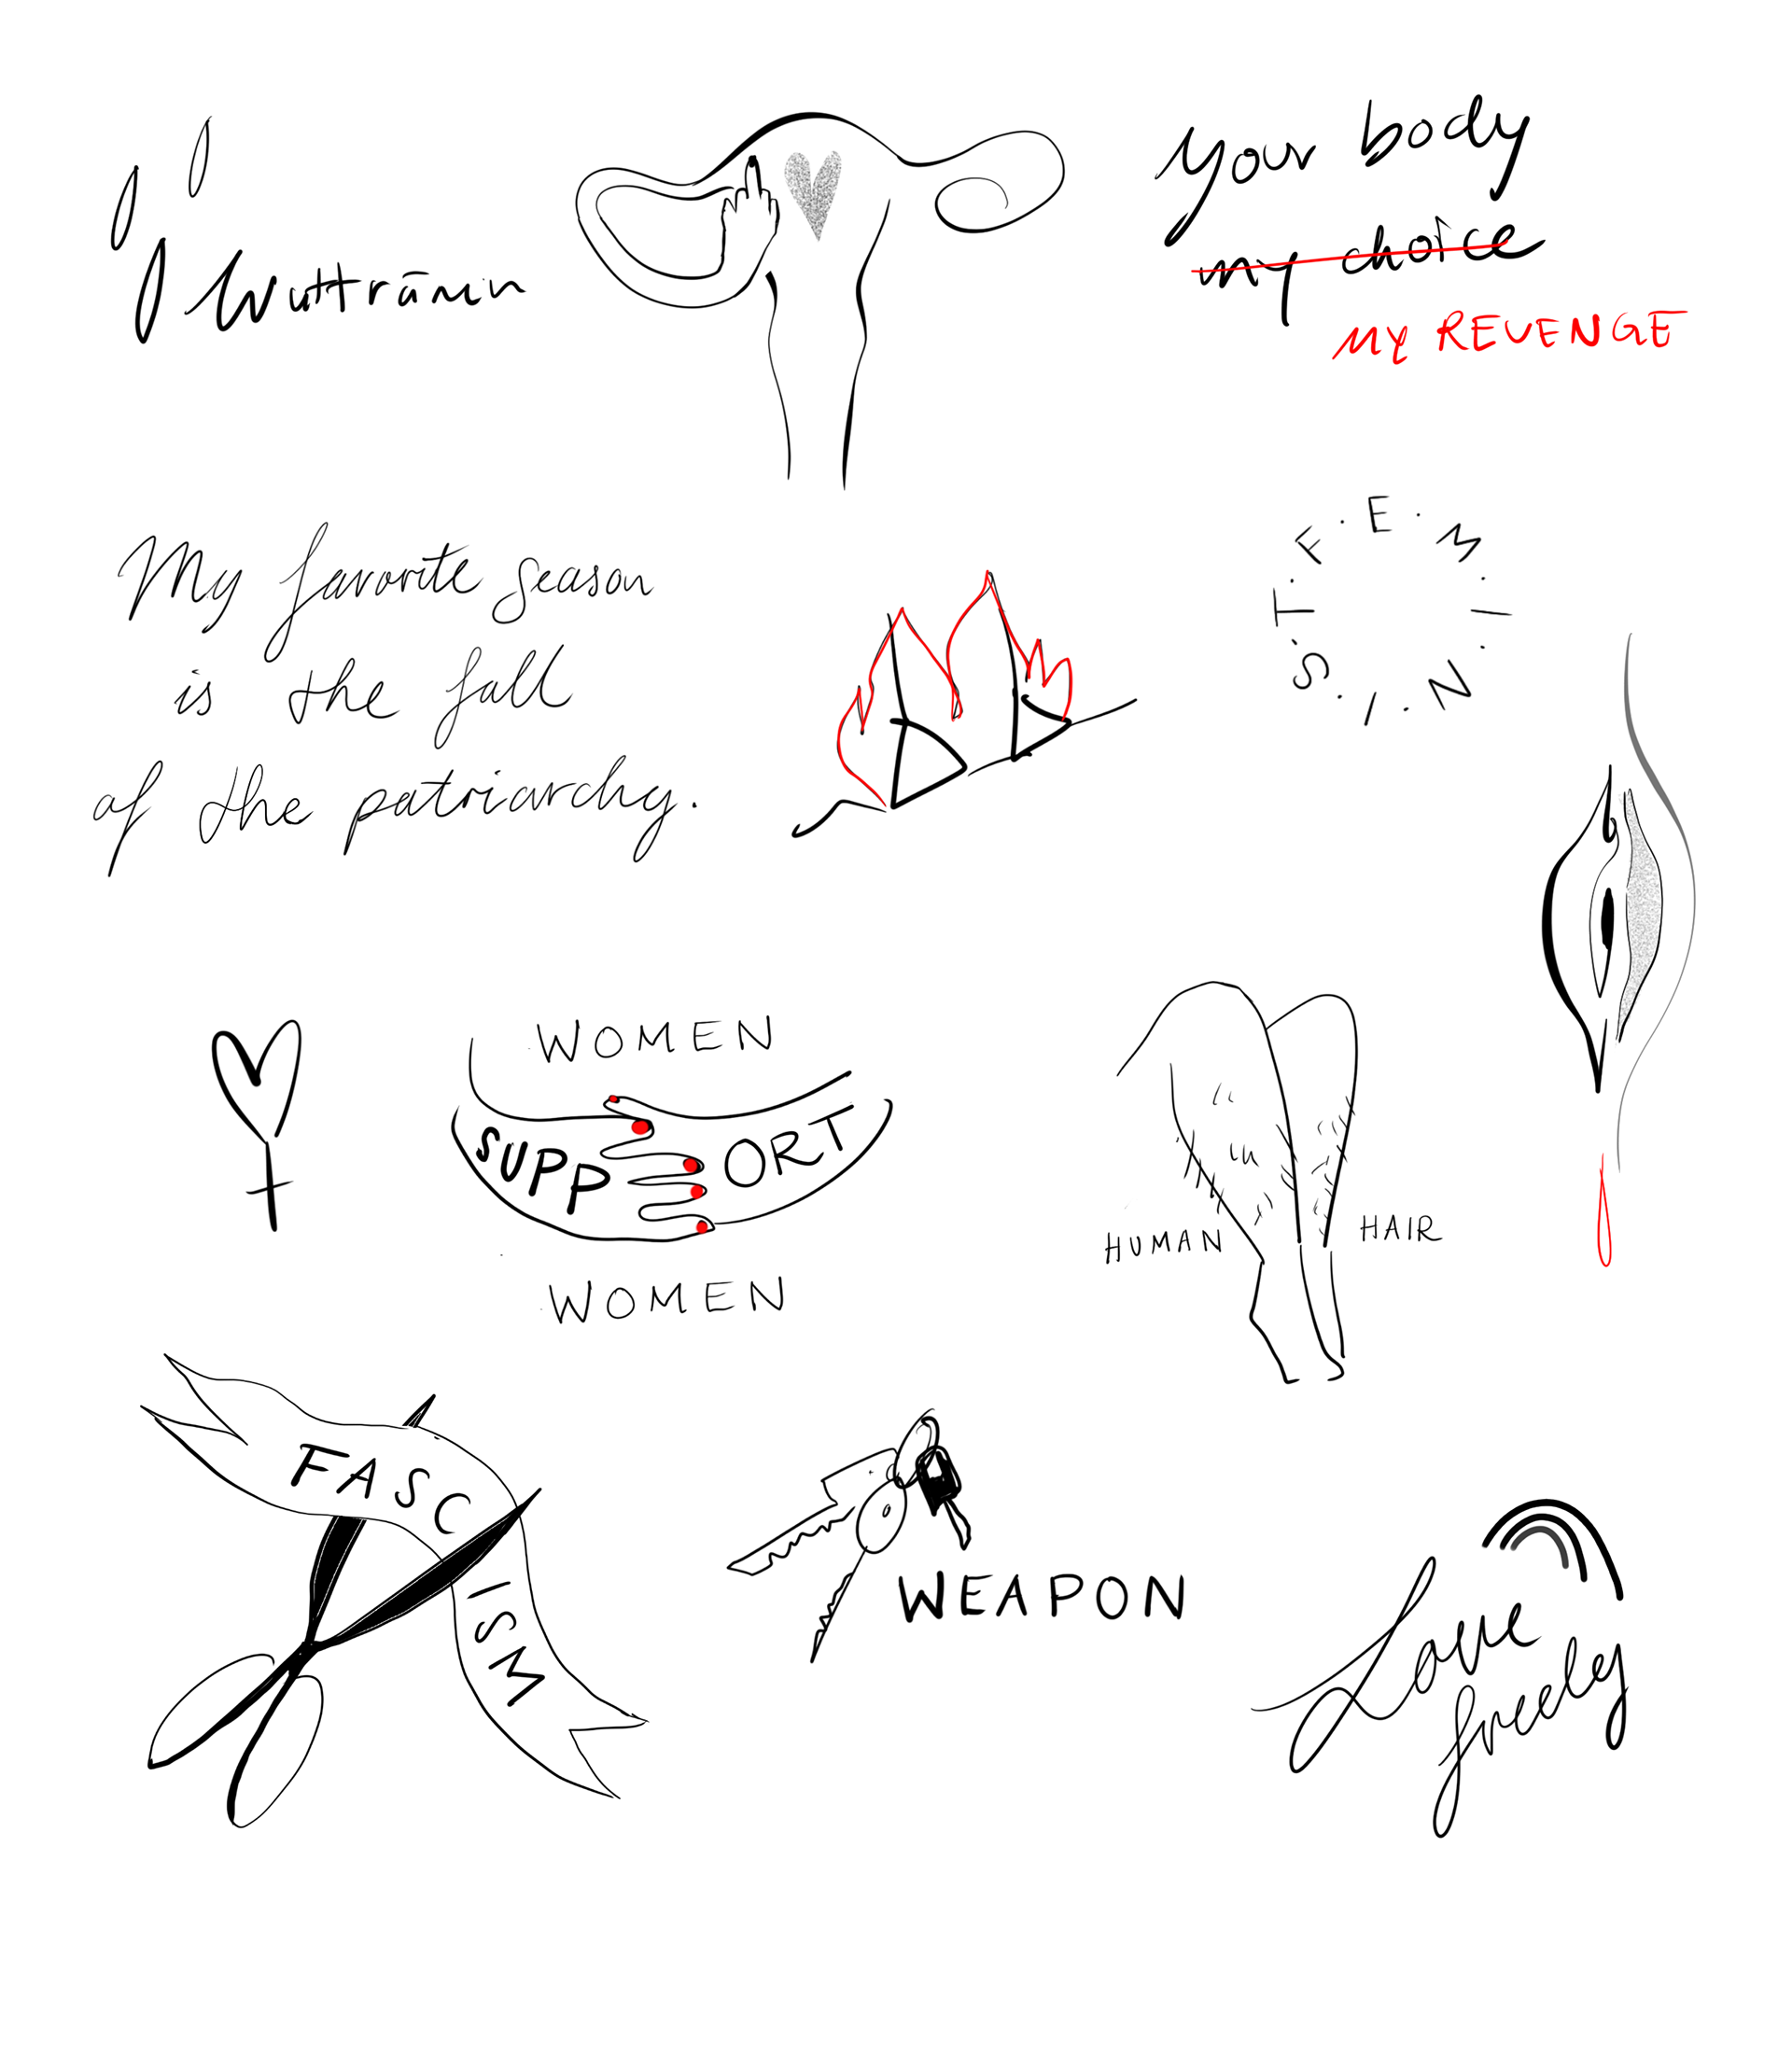 Wuttränen
your body
my choice
My REVENGE
My favorite season
is the fall
of the patriarchy.
F·E·M·I·N·I·S·T·
WOMEN
SUPPORT
WOMEN
HUMAN HAIR
FASCISM
WEAPON
Love
freely